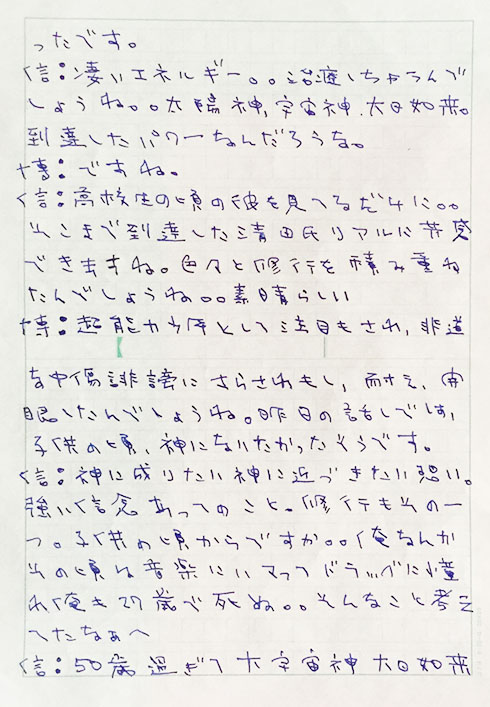 ったです。
信：凄いエネルギー。。治癒しちゃうんで
しょうね。。太陽神、宇宙神、大日如来。
到達したパワーなんだろうな。
博：ですね。
信：高校生の頃の彼を見てるだけに。。
そこまで到達した清田氏リアルに共感
できますね。色々と修行を積み重ね
たんでしょうね。。素晴らしい
博：超能力少年として注目もされ、非道
な中傷誹謗にさらされもし、耐え、開
眼したんでしょうね。昨日の話しでは、
子供の頃、神になりたかったそうです。
信：神に成りたい神に近づきたい想い。
強い信念あってのこと。修行もその一
つ。子供の頃からですか。。俺なんか
その頃は音楽にハマってドラッグに憧
れ俺も27歳で死ぬ。。そんなこと考え
てたなぁへ
信：50歳過ぎて大宇宙神大日如来